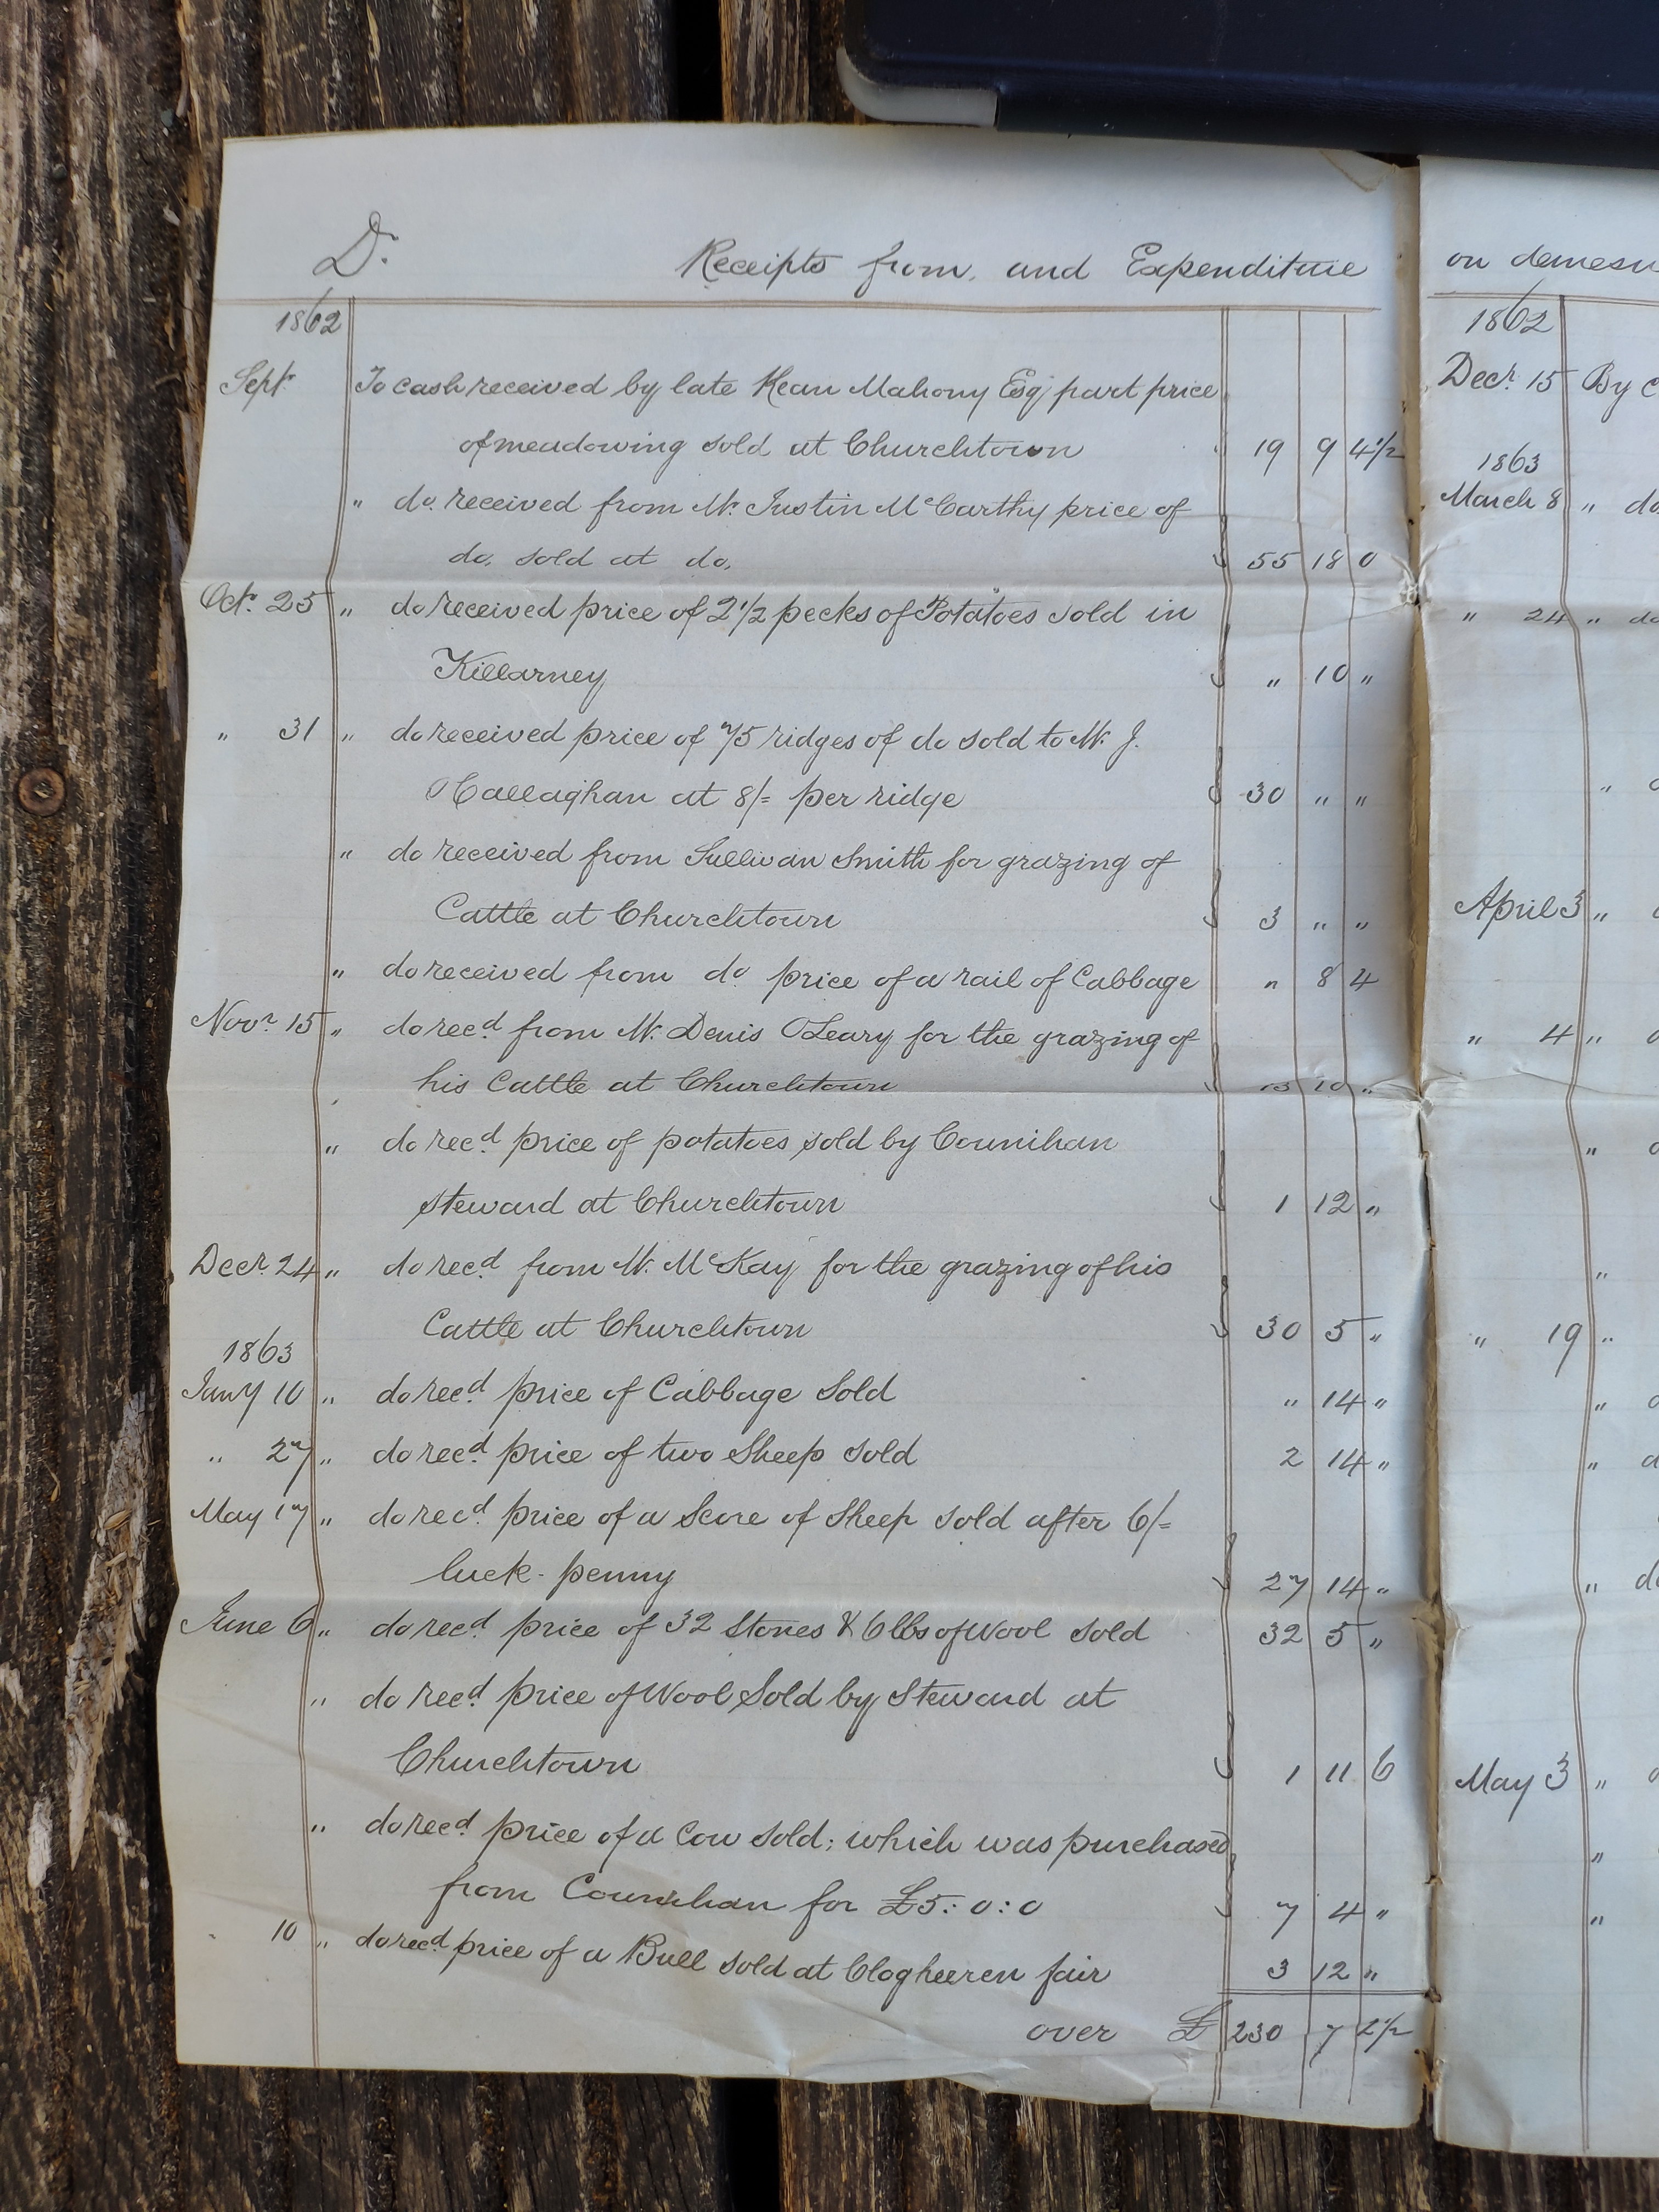 Dr. Receipts from, and Expenditure
1862
Sept. To cash received by late Kean Mahony Esqr. part price
of meadowing sold at Churchtown 19 9 4 1/2
" do. received from Mr. Justin McCarthy price of
do. sold at do. 55 18 0
Octr. 25 " do received price of 2 1/2 pecks of Potatoes sold in
Killarney " 10 "
" 31 " do received price of 75 ridges of do sold to Mr. J.
O'Callaghan at 8/= per ridge 30 " "
" do received from Sullivan Smith for grazing of
Cattle at Churchtown 3 " "
" do received from do price of a rail of Cabbage " 8 4
Novr. 15 " do recd. from Mr. Denis O'Leary for the grazing of
his Cattle at Churchtown 13 10 "
" do recd. price of potatoes sold by Counihan
steward at Churchtown 1 12 "
Decr. 24 " do recd. from Mr. McKay for the grazing of his
Cattle at Churchtown 30 5 "
1863
Jany 10 " do recd. price of Cabbage Sold " 14 "
" 27 " do recd. price of two Sheep sold 2 14 "
May 17 " do recd. price of a Score of Sheep sold after 6/=
luck-penny 27 14 "
June 6 " do recd. price of 32 Stones & 6 lbs of Wool sold 32 5 "
" do recd. price of Wool Sold by Steward at
Churchtown 1 11 6
" do recd. price of a Cow sold; which was purchased
from Counihan for £5:0:0 7 4 "
10 " do recd. price of a Bull sold at Clogheeren fair 3 12 "
over £ 230 7 2 1/2
on demesn
1862
Decr. 15 By c
1863
March 8 " do
" 24 " do
"
April 3 "
" 4 "
"
"
" 19 "
"
" d
" do
May 3 "
"
"